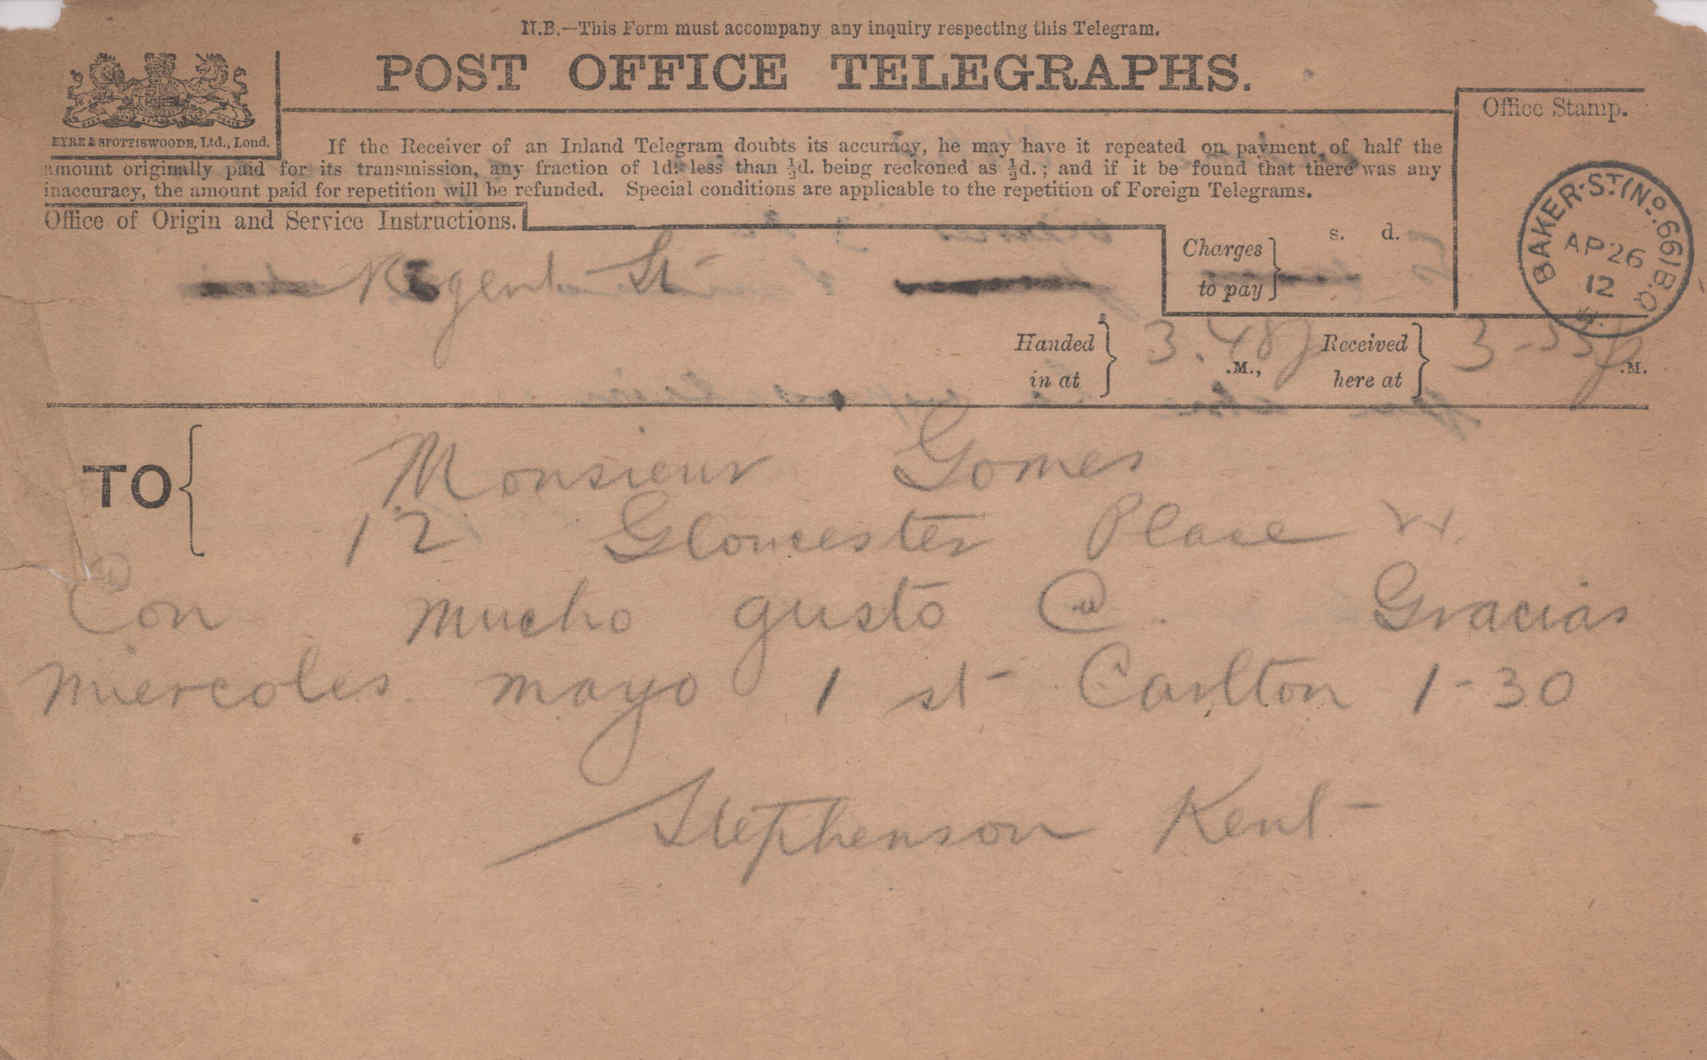 N.B.—This Form must accompany any inquiry respecting this Telegram.
POST OFFICE TELEGRAPHS.
EYRE & SPOTTISWOODE, Ltd., Lond.
Office Stamp.
If the Receiver of an Inland Telegram doubts its accuracy, he may have it repeated on payment of half the
amount originally paid for its transmission, any fraction of 1d. less than ½d. being reckoned as ½d.; and if it be found that there was any
inaccuracy, the amount paid for repetition will be refunded. Special conditions are applicable to the repetition of Foreign Telegrams.
BAKER·ST (No. 661B.O.
AP 26
12
Office of Origin and Service Instructions.
Regent St
Charges to pay } s. d.
Handed in at } 3.48p .M., Received here at } 3-55p .M.
TO { Monsieur Gomes
12 Gloucester Place W.
Con mucho gusto @ Gracias
miercoles mayo 1 st Carlton 1-30
Stephenson Kent